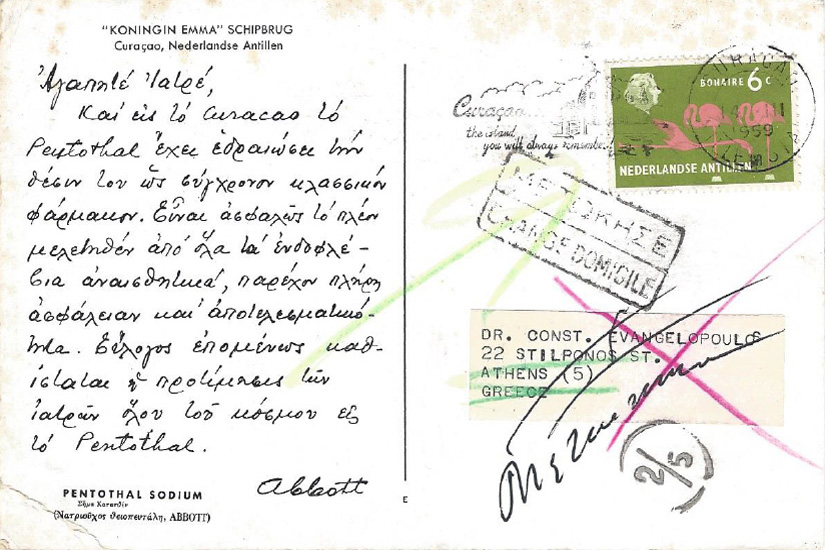 "KONINGIN EMMA" SCHIPBRUG
Curaçao, Nederlandse Antillen
Ἀγαπητέ Ἰατρέ,
Καί εἰς τό Curacao τό
Pentothal ἔχει ἑδραιώσει τήν
θέσιν του ὡς σύγχρονον κλασσικόν
φάρμακον. Εἶναι ἀσφαλῶς τό πλέον
μελετηθέν ἀπό ὅλα τά ἐνδοφλέ-
βια ἀναισθητικά, παρέχον πλήρη
ἀσφάλειαν καί ἀποτελεσματικό-
τητα. Εὔλογος ἑπομένως καθ-
ίσταται ἡ προτίμησις τῶν
ἰατρῶν ὅλου τοῦ κόσμου εἰς
τό Pentothal.
Abbott
PENTOTHAL SODIUM
Σῆμα Κατατεθέν
(Νατριοῦχος θειοπεντάλη, ABBOTT)
E
Curaçao...
the island
you will always remember
CURAÇAO
1959
BONAIRE 6 C
NEDERLANDSE ANTILLEN
ΜΕΤΩΚΗΣΕ
CHANG. DOMICILE
DR. CONST. EVANGELOPOULOS
22 STILPONOS ST.
ATHENS (5)
GREECE
2/5